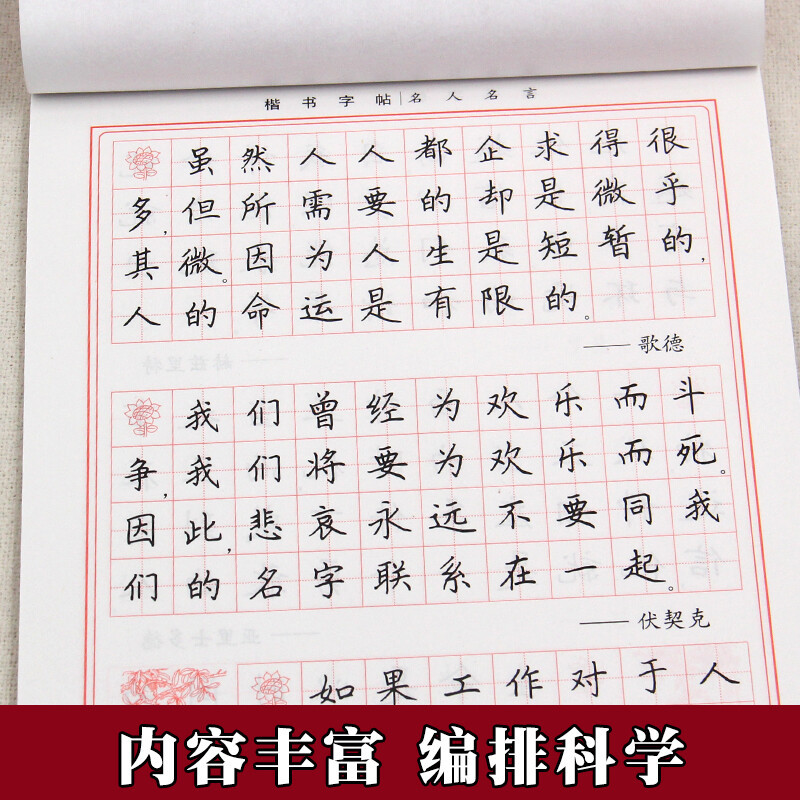 楷书字帖|名人名言
虽然人人都企求得很
多,但所需要的却是微乎
其微。因为人生是短暂的,
人的命运是有限的。
——歌德
我们曾经为欢乐而斗
争,我们将要为欢乐而死。
因此,悲哀永远不要同我
们的名字联系在一起。
——伏契克
如果工作对于人
内容丰富 编排科学